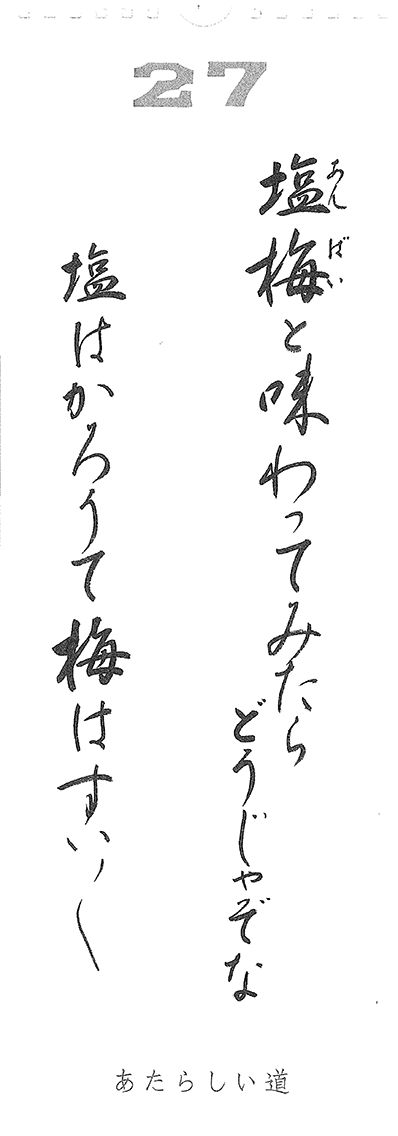 27
塩梅と味わってみたら
あんばい
どうじゃぞな
塩はかろうて梅はすい〱
あたらしい道